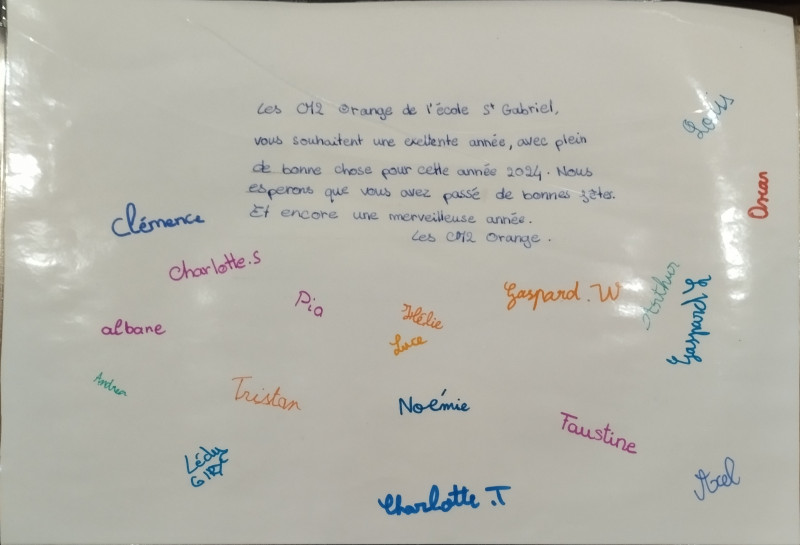 Les CM2 Orange de l'école St Gabriel,
vous souhaitent une exellente année, avec plein
de bonne chose pour cette année 2024. Nous
esperons que vous avez passé de bonnes fêtes.
Et encore une merveilleuse année.
Les CM2 Orange.
Loïs
Oscar
Clémence
Charlotte.S
Pia
Gaspard.W
Arthur
Gaspard L
albane
Hélie
Luce
Andrea
Tristan
Noémie
Faustine
Axel
Charlotte.T